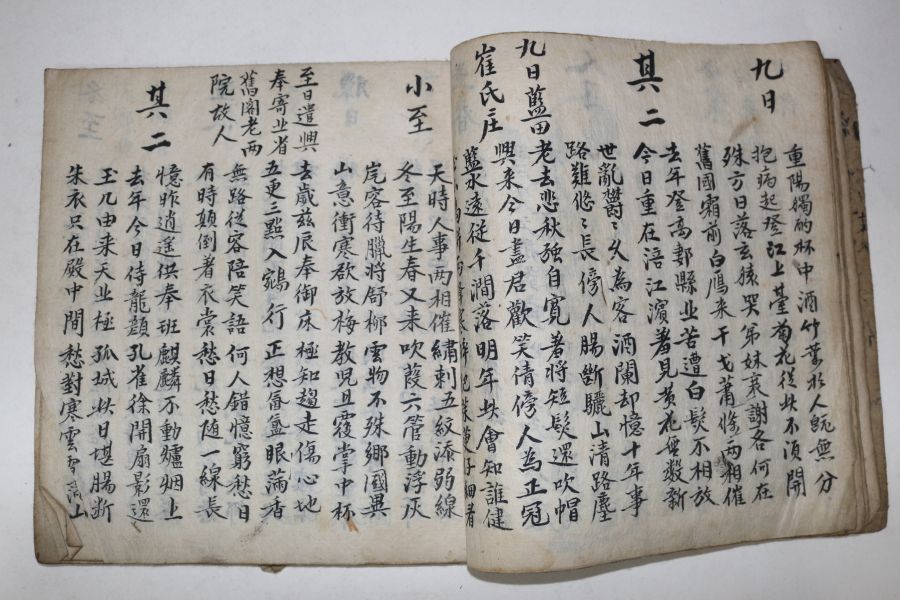 九日
重陽獨酌杯中酒竹葉於人旣無分
抱病起登江上臺菊花從此不湏開
殊方日落玄猿哭弟妹衰謝各何在
舊國霜前白鴈来干戈蕭條兩相催
其二
去年登高郪縣北苦遭白髮不相放
今日重在涪江濱羞見黃花無數新
世亂鬱〻久為客酒闌却憶十年事
路難悠〻長傍人腸斷驪山清路塵
九日藍田
崔氏庄
老去悲秋強自寬羞将短髮還吹帽
興来今日盡君歡笑倩傍人為正冠
藍水遠從千澗落明年此會知誰健
子細看
小至
天時人事兩相催繡刺五紋添弱線
冬至陽生春又来吹葭六管動浮灰
岸容待臘将舒柳雲物不殊鄉國異
山意衝寒欲放梅教兒且覆掌中杯
至日遣興
奉寄北省
舊閣老兩
院故人
去歲玆辰奉御床極知趍走傷心地
五更三點入鵷行正想氤氳眼滿香
無路從容陪笑語何人錯憶窮愁日
有時顛倒著衣裳愁日愁随一線長
其二
憶昨逍遥供奉班麒麟不動爐烟上
去年今日侍龍顔孔雀徐開扇影還
玉几由来天北極孤城此日堪腸斷
朱衣只在殿中間愁對寒雲雪滿山